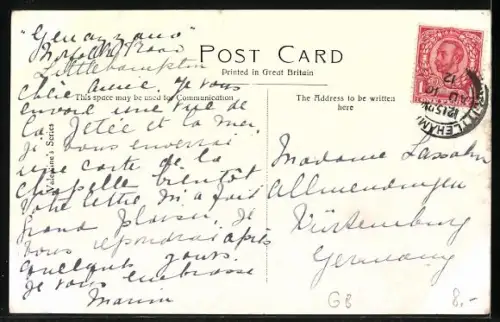 "Genazzano"
Norfolk Road
Littlehampton
Chère amie. Je vous
envoie une vue de
la Jetée et la mer.
Je vous enverrai
une carte de la
Chapelle bientôt
Votre lettre m'a fait
grand plaisir. Je
vous répondrai après
quelques jours.
Je vous embrasse
POST CARD
Printed in Great Britain
This space may be used for Communication
The Address to be written
here
Valentine's Series
Madame Lassahn
Allmendingen
Würtemburg
Germany
GB
8.-